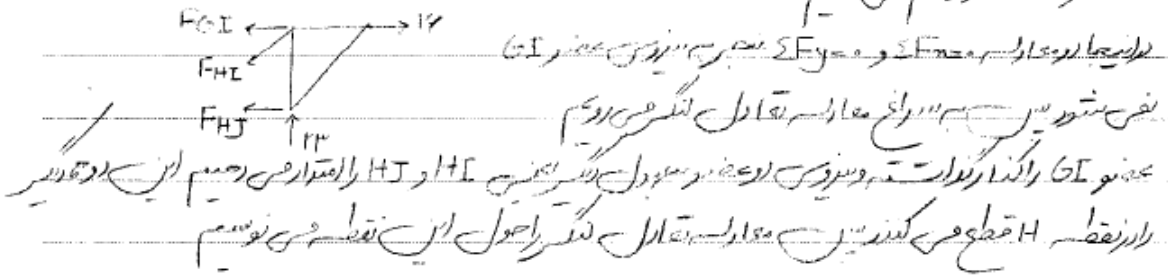 F_GI ← → ۱۶
در اینجا دو معادله ΣFx=۰ و ΣFy=۰ منجر به نیروی عضو GI
F_HI
F_HJ
نمی شود پس به سراغ معادله تعادل لنگر می رویم
۲۳
عضو GI را کنار گذاشته و نیروی دو عضو مجهول دیگر یعنی HI و HJ را امتداد می دهیم این دو همدیگر
را در نقطه H قطع می کنند پس معادله تعادل لنگر را حول این نقطه می نویسیم